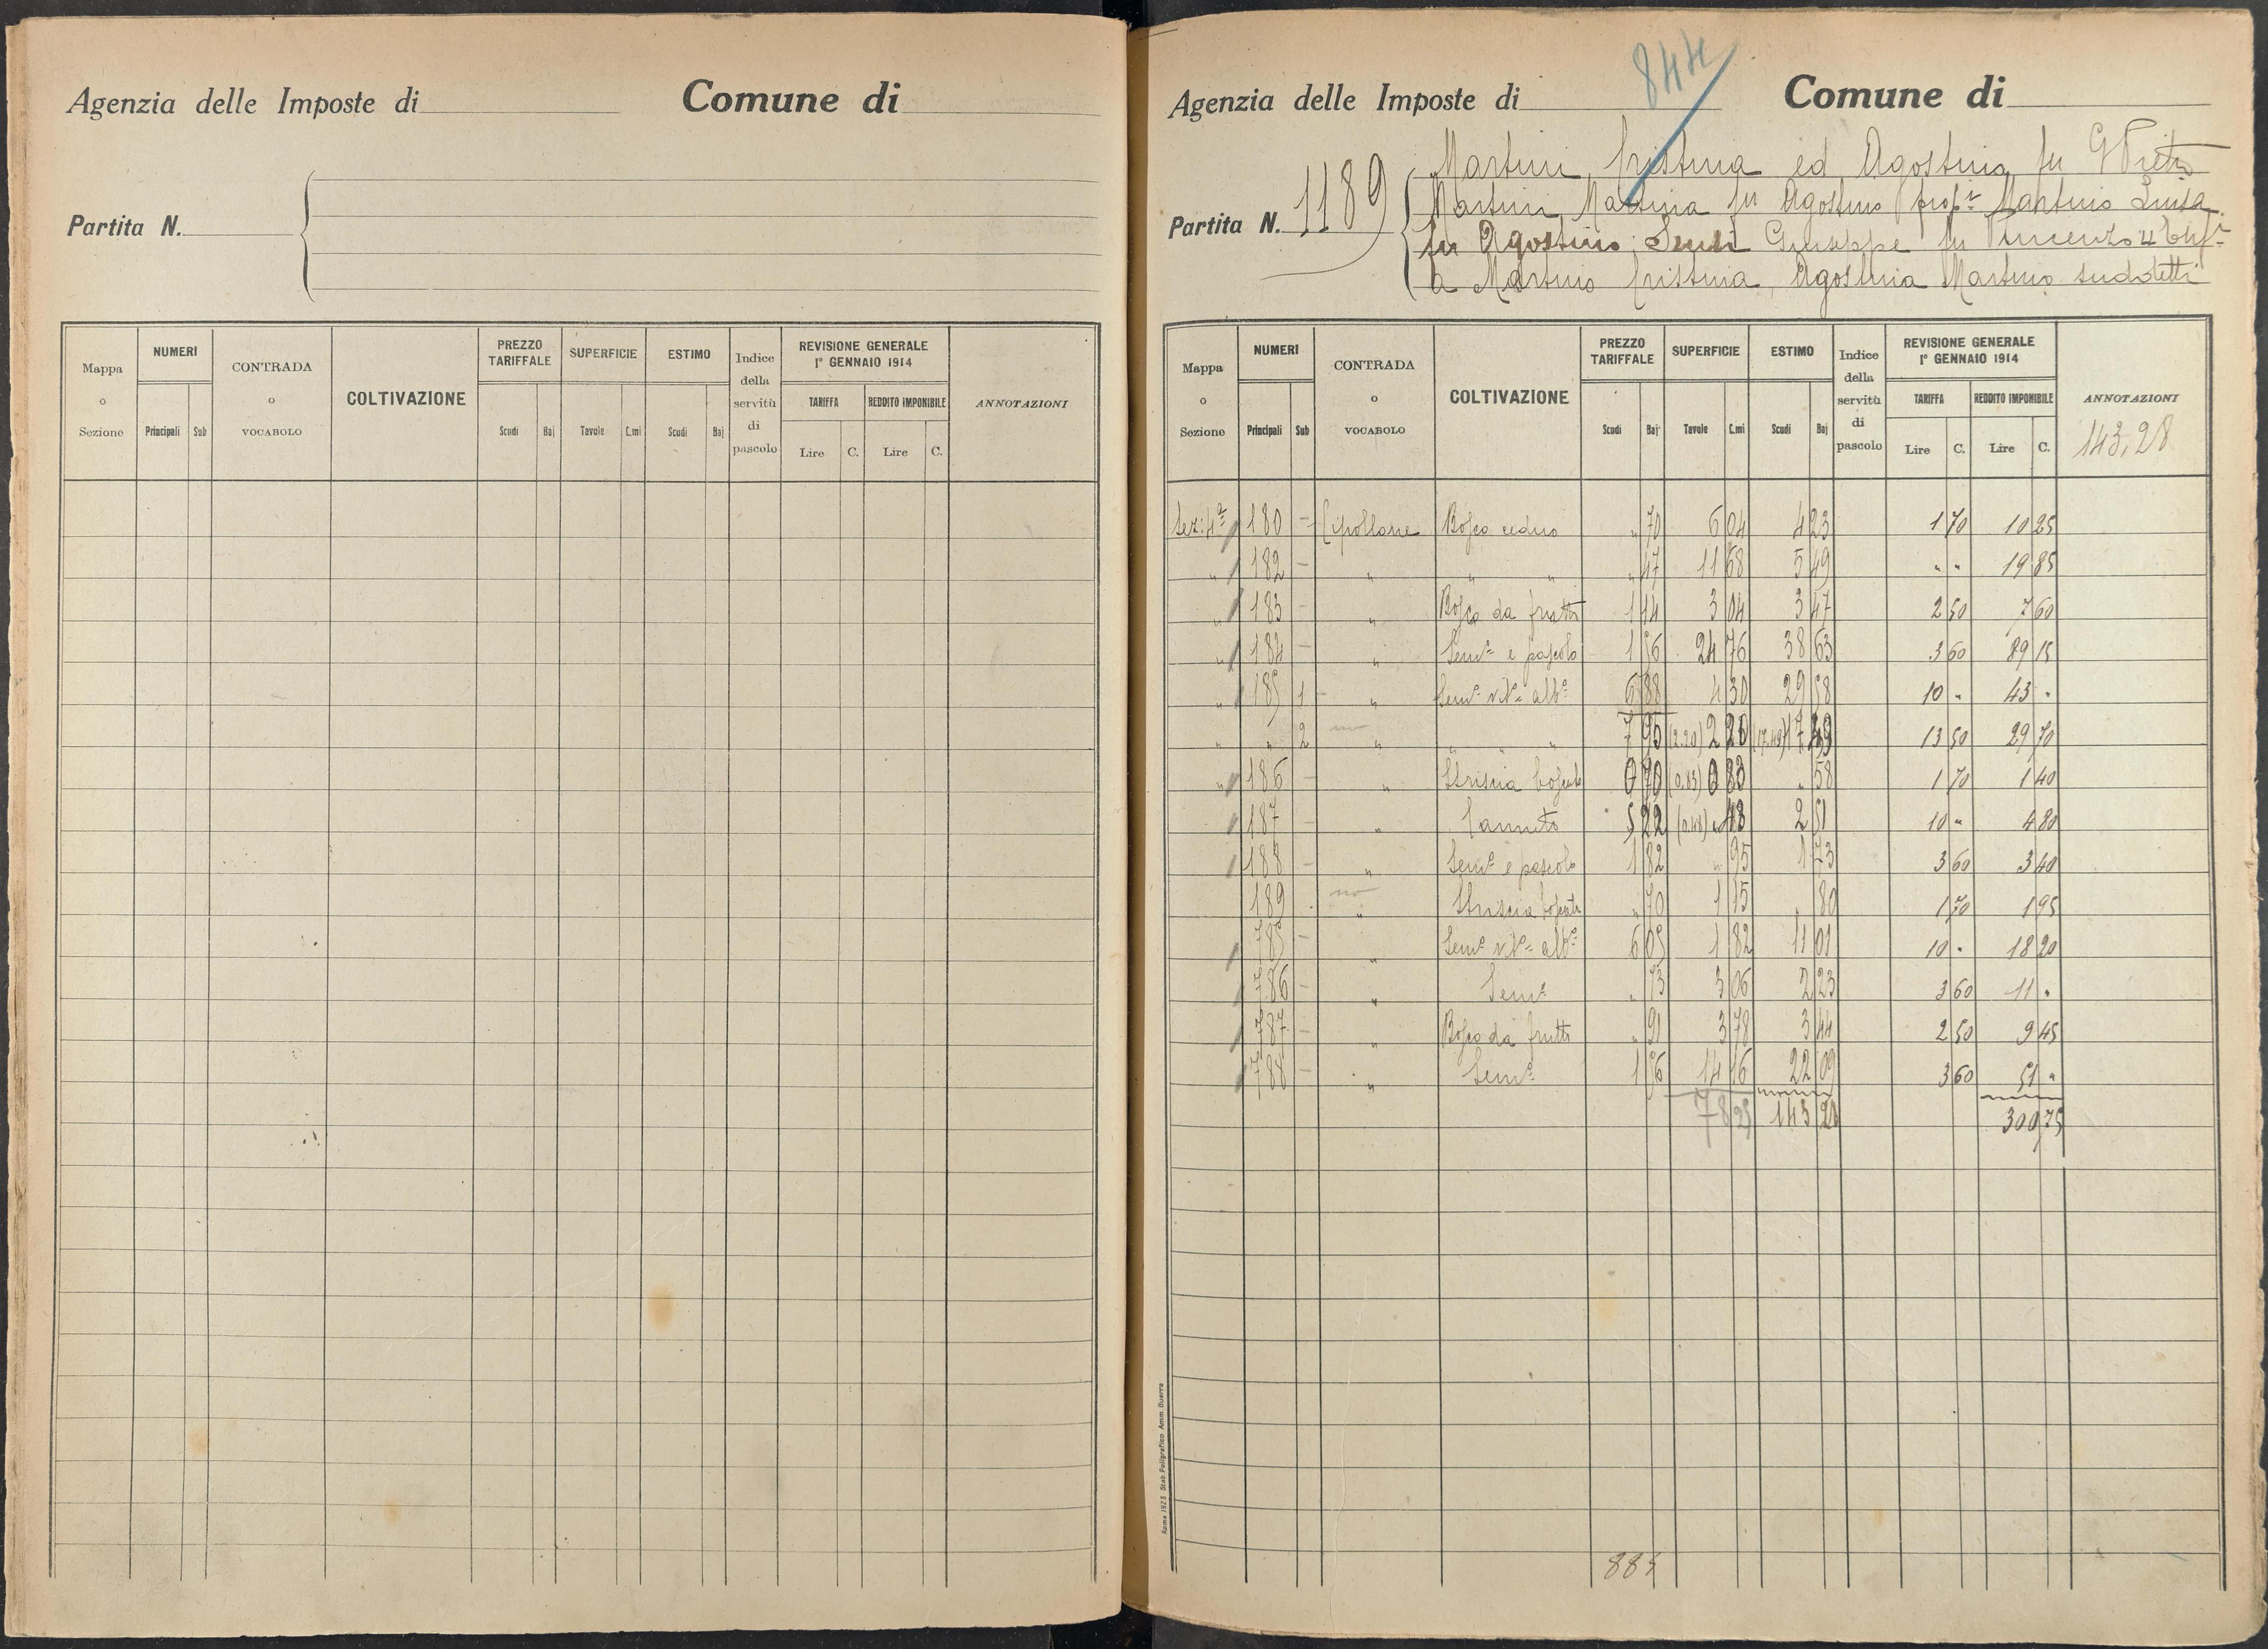 Agenzia delle Imposte di Comune di
Partita N.
Mappa o Sezione NUMERI Principali Sub CONTRADA o VOCABOLO COLTIVAZIONE PREZZO TARIFFALE Scudi Baj SUPERFICIE Tavole C.mi ESTIMO Scudi Baj Indice della servitù di pascolo REVISIONE GENERALE 1° GENNAIO 1914 TARIFFA Lire C. REDDITO IMPONIBILE Lire C. ANNOTAZIONI
844
Agenzia delle Imposte di Comune di
Partita N. 1189
Martini Cristina ed Agostina fu
Martini Martina fu Agostino propr Martino Luisa
fu Agostino; Giuseppe fu Vincenzo
a Martino Cristina, Agostina Martino suddetti
Mappa o Sezione NUMERI Principali Sub CONTRADA o VOCABOLO COLTIVAZIONE PREZZO TARIFFALE Scudi Baj SUPERFICIE Tavole C.mi ESTIMO Scudi Baj Indice della servitù di pascolo REVISIONE GENERALE 1° GENNAIO 1914 TARIFFA Lire C. REDDITO IMPONIBILE Lire C. ANNOTAZIONI
143,28
Sez: 4ª 180 - Cipollane Bosco ceduo " 70 6 04 4 23 1 70 10 25
" 182 - " " " " 47 11 68 5 49 " " 19 85
" 183 - " Bosco da frutto 1 14 3 04 3 47 2 50 7 60
" 184 - " Semo e pascolo 1 56 24 76 38 63 3 60 89 15
" 185 1 - " Semo vito albo 6 88 4 30 29 58 10 " 43 "
" " 2 no " " " " 7 95 (2.20) 2 20 (17.49) 17 49 13 50 29 70
" 186 - " Striscia boscata 0 70 (0.83) 0 83 " 58 1 70 1 40
187 - " Canneto 5 22 (0.48) " 48 2 51 10 " 4 80
188 - " Semo e pascolo 1 82 " 95 1 73 3 60 3 40
189 no " Striscia boscata " 70 1 15 " 80 1 70 1 95
785 - " Semo vito albo 6 05 1 82 11 01 10 " 18 20
786 - " Semo " 73 3 06 2 23 3 60 11 "
787 - " Bosco da frutto " 91 3 78 3 44 2 50 9 45
788 - " Semo 1 56 14 16 22 09 3 60 51 "
78 25 143 28 300 75
885
Roma 1923 Stab. Poligrafico Amm. Guerra